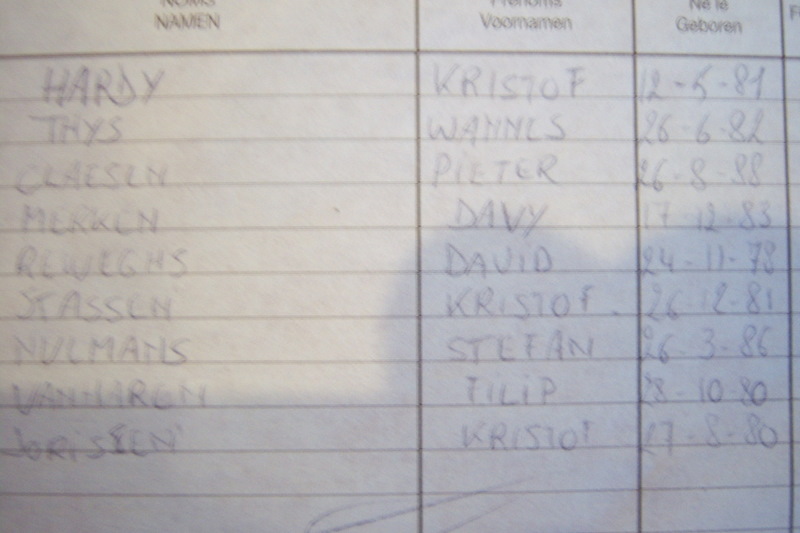 NOMS Prénoms Né le
NAMEN Voornamen Geboren
HARDY KRISTOF 12-5-81
THYS WANNES 26-6-82
CLAESEN PIETER 26-8-88
MERKEN DAVY 17-12-83
REWEGHS DAVID 24-11-78
STASSEN KRISTOF 26-12-81
NULMANS STEFAN 26-3-86
FILIP 28-10-80
JORISSEN KRISTOF 27-8-80